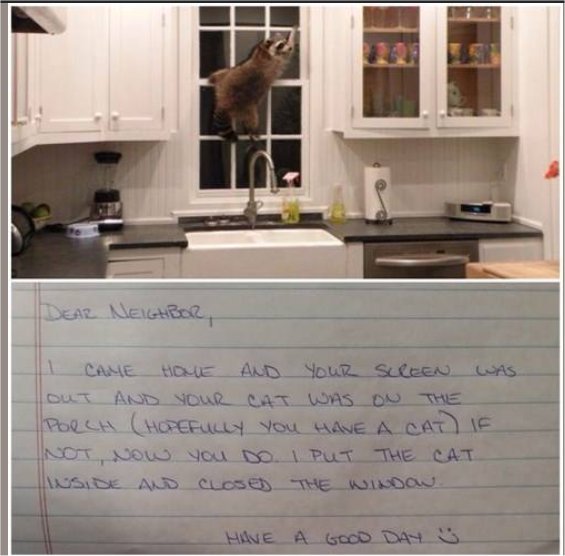 DEAR NEIGHBOR,
I CAME HOME AND YOUR SCREEN WAS
OUT AND YOUR CAT WAS ON THE
PORCH (HOPEFULLY YOU HAVE A CAT) IF
NOT, NOW YOU DO. I PUT THE CAT
INSIDE AND CLOSED THE WINDOW.
HAVE A GOOD DAY Ü